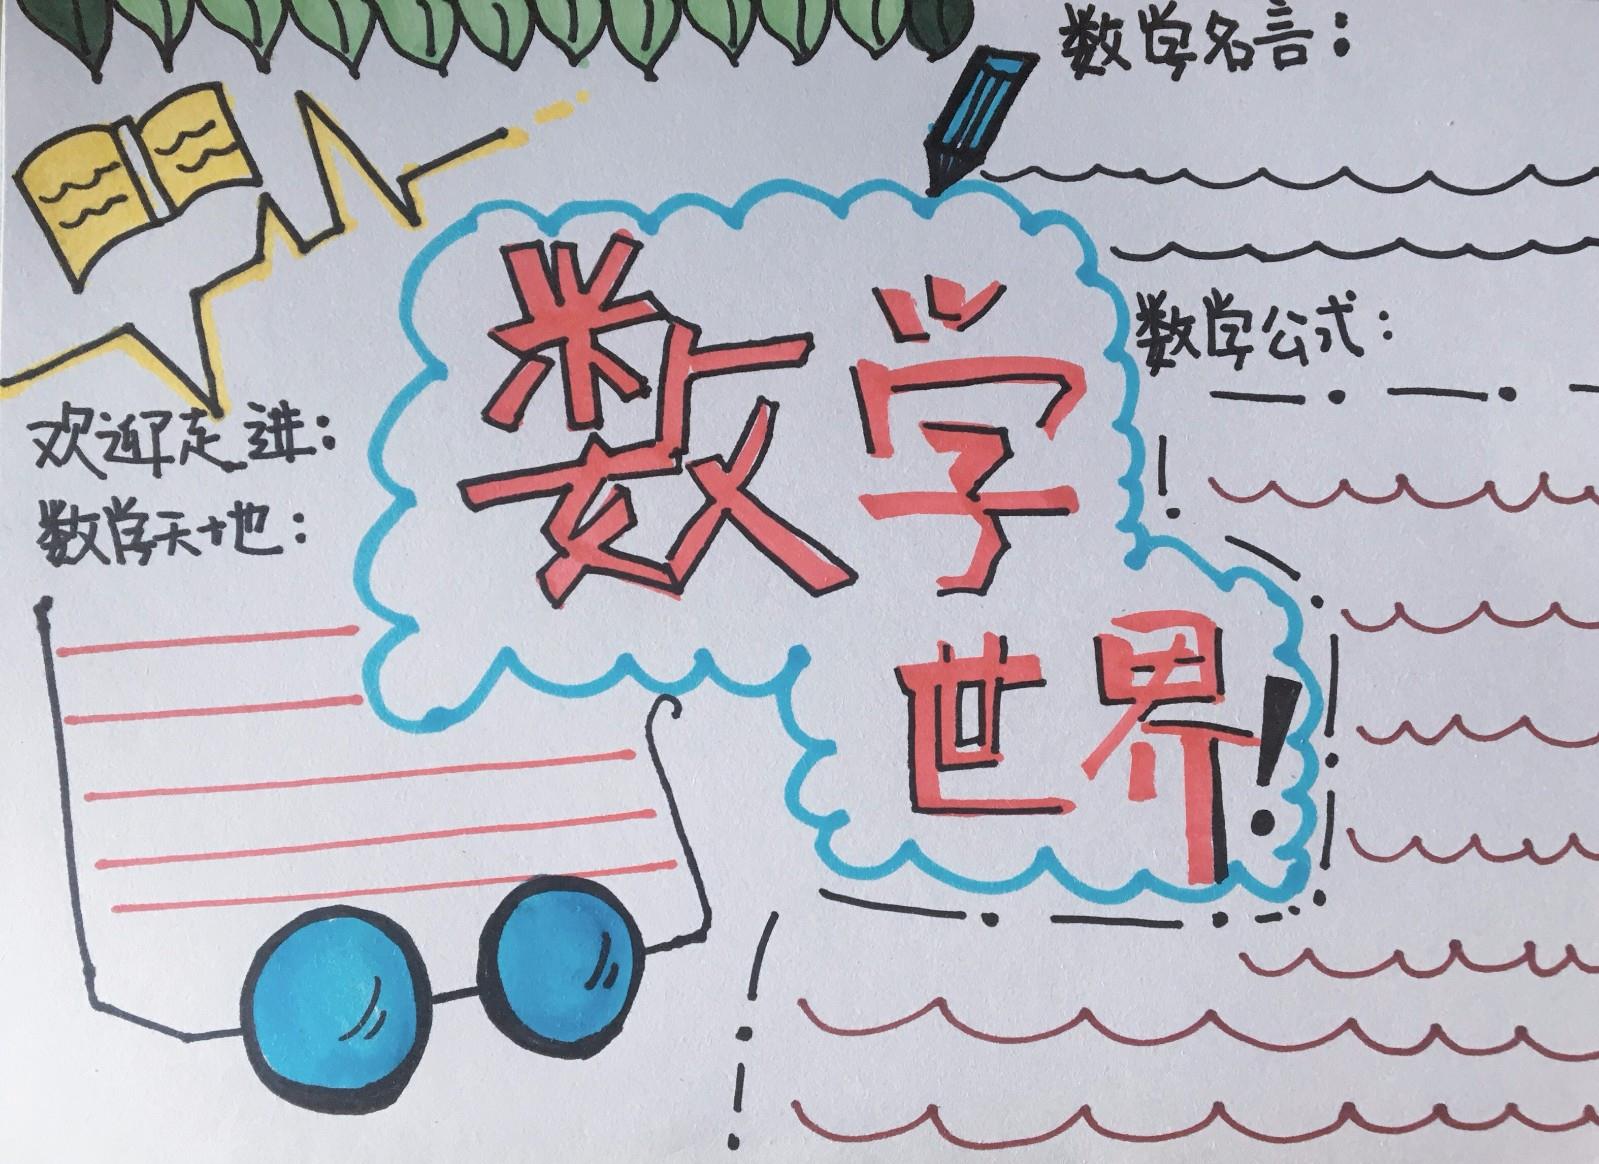 数学名言：
数学公式：
欢迎走进：
数学天地：
数学
世界！